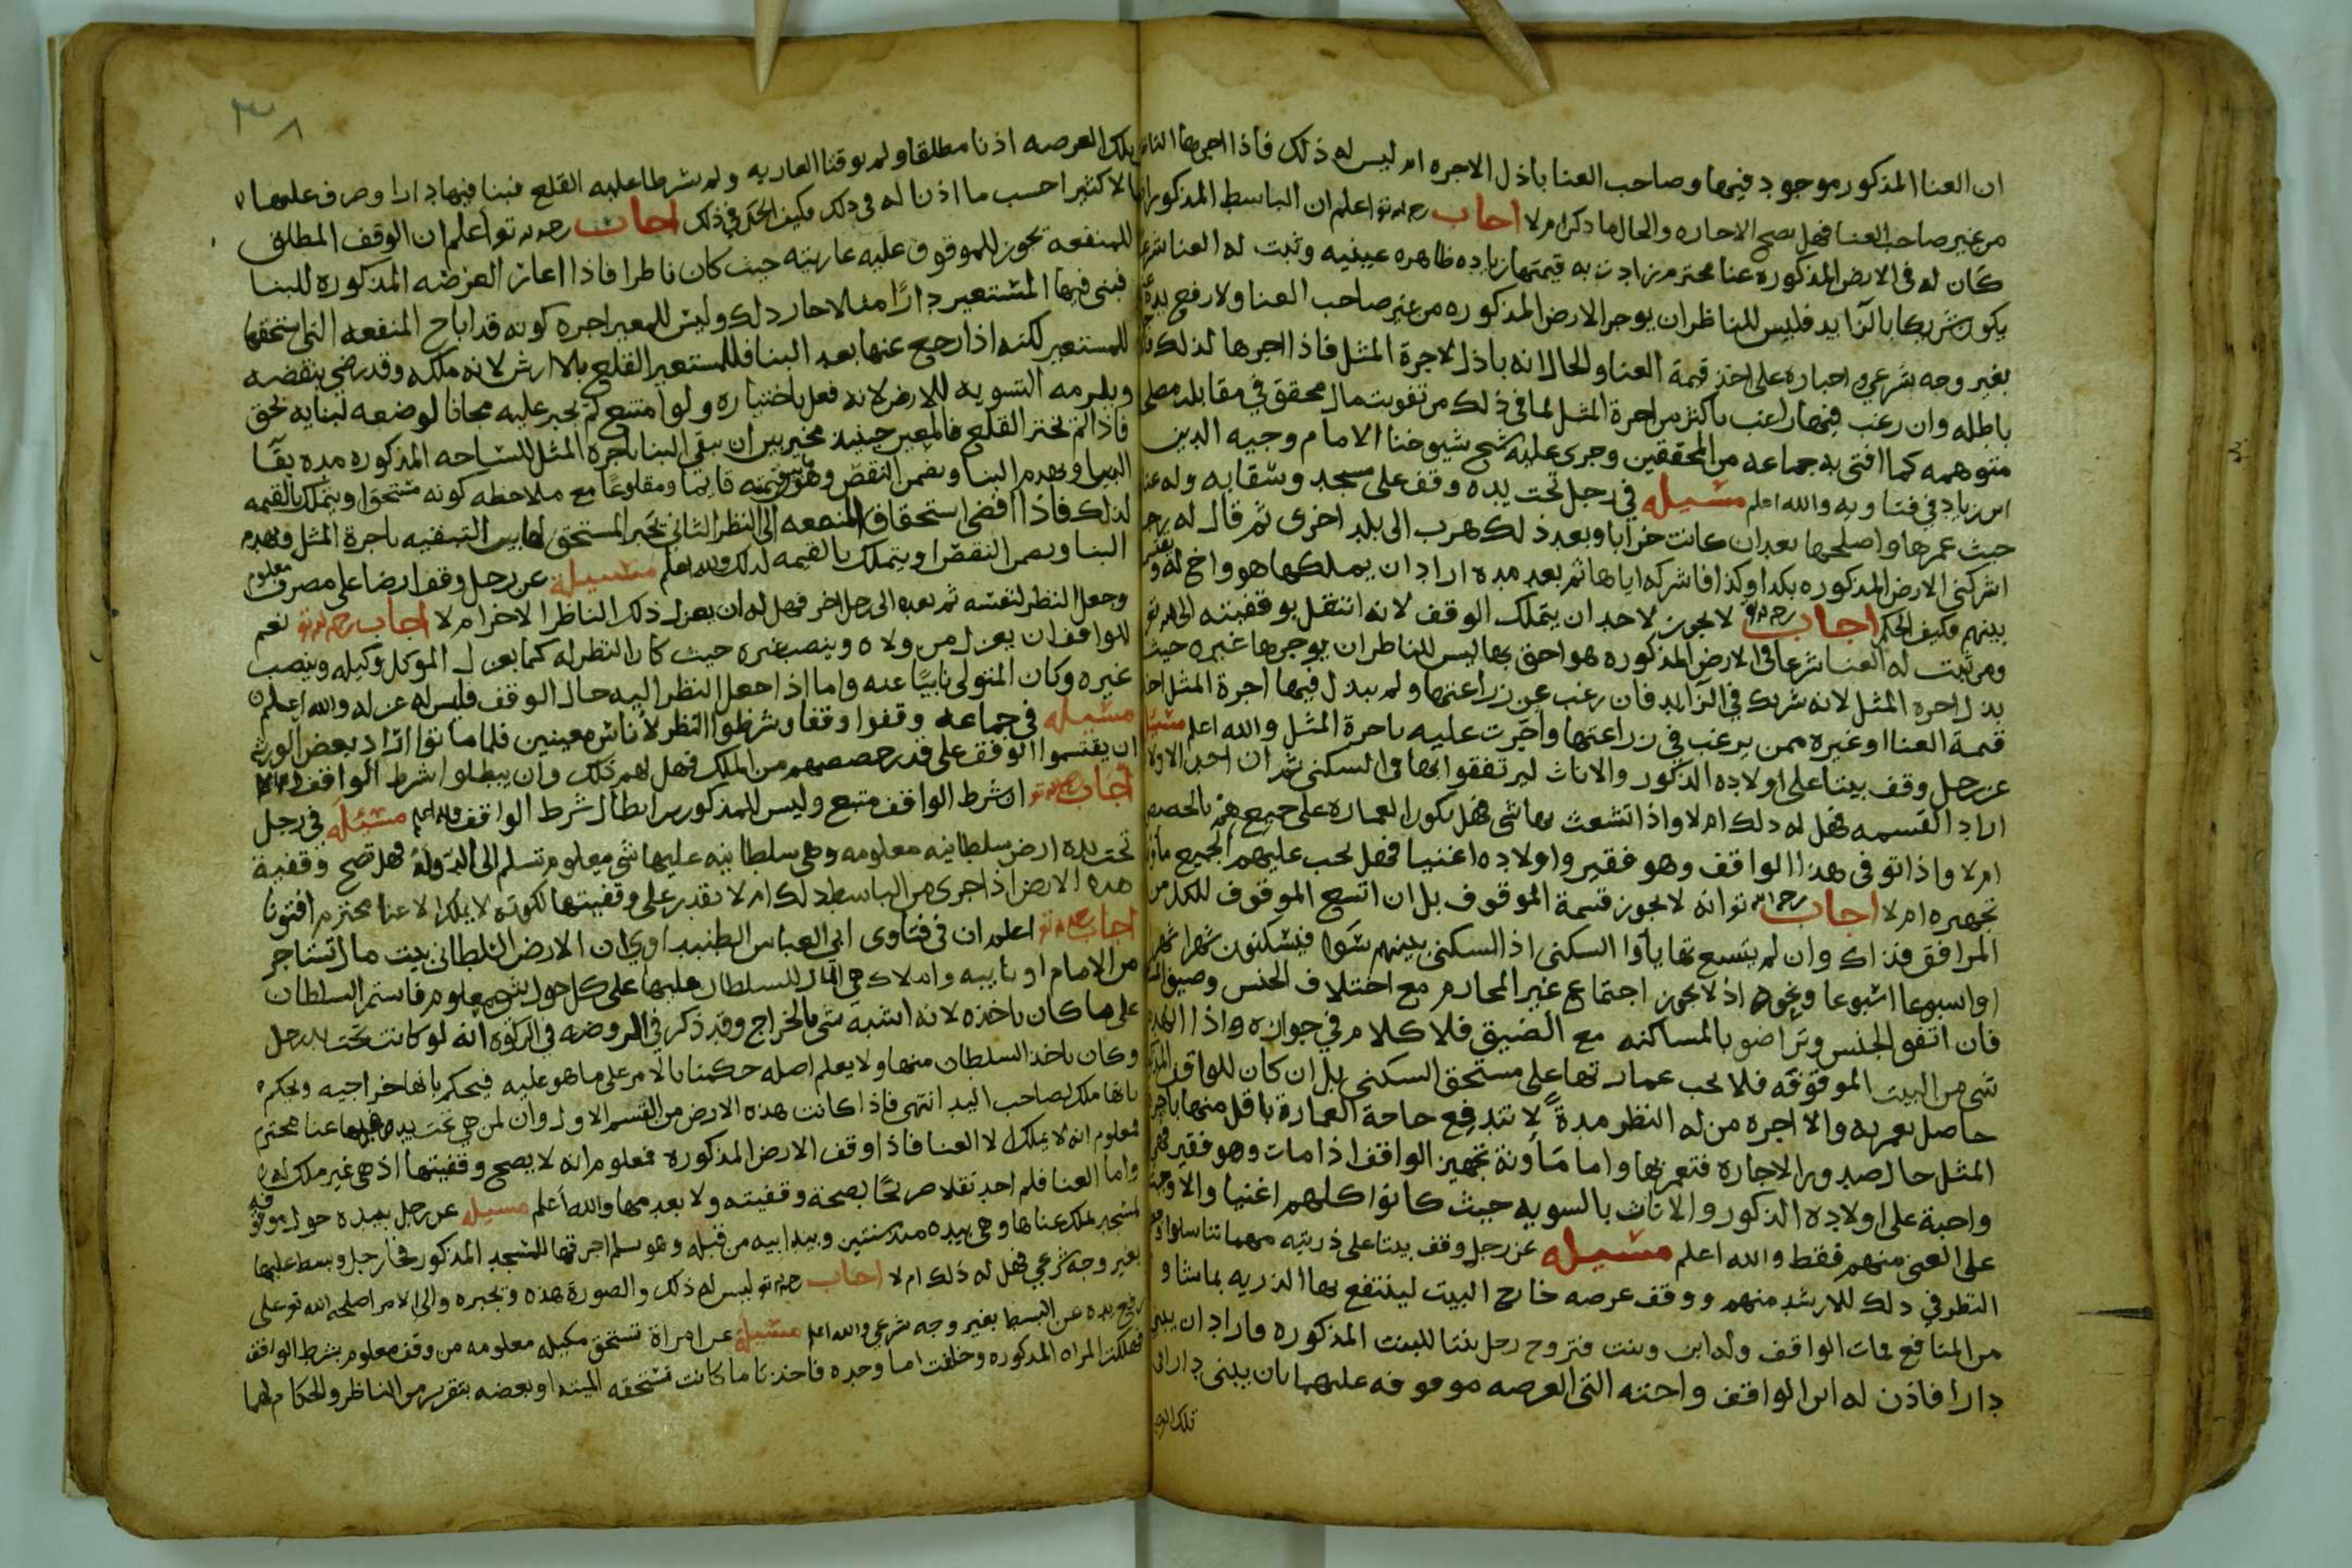 ان العنا المذكور موجود فيها وصاحب العنا باذل الاجره ام ليس له ذلك فاذا اجرها
من غير صاحب العنا فهل يصح الاجاره والحال ما ذكر ام لا اجاب رحمه الله تع اعلم ان الباسط المذكور
كان له في الارض المذكوره عنا محترم زادت به قيمتها زياده ظاهره عينيه وثبت له العنا
يكون شريكا بالزايد فليس للناظر ان يوجر الارض المذكوره من غير صاحب العنا ولا رفع يده
بغير وجه شرعي واجباره على اخذ قيمة العنا والحال انه باذل لاجرة المثل فاذا اجرها لذلك
باطله وان رغب فيها راغب باكثر من اجرة المثل لما في ذلك من تفويت مال محقق في مقابله
متوهمه كما افتى به جماعه من المحققين وجرى عليه شيخ شيوخنا الامام وجيه الدين
ابن زياد في فتاويه والله اعلم مسئله في رجل تحت يده وقف على مسجد وسقايه وله
حيث عمرها واصلحها بعد ان كانت خرابا وبعد ذلك هرب الى بلد اخرى ثم قال له
اشركني الارض المذكوره بكذا وكذا فاشركه اياها ثم بعد مده اراد ان يملكها هو واخ له
بينهم فكيف الحكم اجاب رحمه الله لا يجوز لاحد ان يتملك الوقف لانه انتقل بوقفيته
ومن ثبت له العنا شرعا في الارض المذكوره هو احق بها ليس للناظر ان يوجرها غيره حيث
بذل اجره المثل لانه شريك في الزايد فان رغب عن زراعتها ولم يبذل فيها اجرة المثل
قيمة العنا او غيره ممن يرغب في زراعتها واجرت عليه باجرة المثل والله اعلم
عن رجل وقف بيتا على اولاده الذكور والاناث ليرتفقوا بها في السكنى ثم ان احد
اراد القسمه فهل له ذلك ام لا واذا تشعث بها شي فهل يكون العماره على جميعهم بالحصص
ام لا واذا توفي هذا الواقف وهو فقير واولاده اغنيا فهل يجب عليهم الجميع
تجهيزه ام لا اجاب رحمه الله تع انه لا يجوز قسمة الموقوف بل ان اتسع الموقوف للكل
المرافق فذاك وان لم يتسع تهايأوا السكنى اذ السكنى بينهم سوا فيسكنون شهرا شهرا
او اسبوعا اسبوعا ونحوه اذ لا يجوز اجتماع غير المحارم مع اختلاف الجنس وضيق
فان اتفق الجنس وتراضو بالمساكنه مع الضيق فلا كلام في جوازه واذا انهدم
شي من البيت الموقوفه فلا يجب عمارتها على مستحق السكنى بل ان كان للواقف
حاصل يعمر به والا اجره من له النظر مدةً لا تندفع حاجة العمارة باقل منها
المثل حال صدور الاجاره فتعمر بها واما مأونة تجهيز الواقف اذا مات وهو فقير
واجبة على اولاده الذكور والاناث بالسويه حيث كانوا كلهم اغنيا والا
على الغني منهم فقط والله اعلم مسئله عن رجل وقف بيتا على ذريته مهما تناسلوا
النظر في ذلك للارشد منهم ووقف عرصه خارج البيت لينتفع بها الذريه بماشا و
من المنافع فمات الواقف وله ابن وبنت فتزوج رجل بنتا للبنت المذكوره فاراد ان يبني
دارا فاذن له ابن الواقف واخته التي العرصه موقوفه عليهما بان يبني دارا في
تلك
تلك العرصه اذنا مطلقا ولم يوقتا العاريه ولم يشرطا عليه القلع فبنا فيها دارا وصرف عليها
مالا كثيرا حسب ما اذنا له في ذلك فكيف الحكم في ذلك اجاب رحمه الله تع اعلم ان الوقف المطلق
للمنفعه يجوز للموقوف عليه عاريته حيث كان ناظرا فاذا اعار العرصه المذكوره للبنا
فبنى فيها المستعير دارًا مثلا جاز ذلك وليس للمعير اجره كونه قد اباح المنفعه التي يستحقها
للمستعير لكنه اذا رجع عنها بعد البنا فللمستعير القلع بلا ارش لانه ملكه وقد رضي بنقضه
ويلزمه التسويه للارض لانه فعل باختياره ولو امتنع لم يجبر عليه مجانا لوضعه لبنايه بحق
فاذا لم يختر القلع فالمعير حينئذ مخير بين ان يبقي البنا باجرة المثل للساحه المذكوره مده بقا
البنا او يهدم البنا ويضمن النقض وهو قيمته قايما ومقلوعًا مع ملاحظه كونه مستحق او يتملك بالقيمه
لذلك فاذا افضى استحقاق المنفعه الى النظر الثاني تخير المستحق لها بين التبقيه باجرة المثل وهدم
البنا ويضمن النقض او يتملك بالقيمه لذلك والله اعلم مسئلة عن رجل وقف ارضا على مصرف معلوم
وجعل النظر لنفسه ثم بعده الى رجل اخر فهل له ان يعزل ذلك الناظر الاخر ام لا اجاب رحمه الله تع نعم
للواقف ان يعزل من ولاه وينصب غيره حيث كان النظر له كما يعزل الموكل وكيله وينصب
غيره وكان المتولي نايبًا عنه واما اذا جعل النظر اليه حال الوقف فليس له عزله والله اعلم
مسئله في جماعه وقفوا وقفا وشرطوا النظر لأناس معينين فلما ماتوا اراد بعض الورثه
ان يقتسموا الوقف على قدر حصصهم من الملك فهل لهم ذلك وان يبطلوا شرط الواقف ام لا
اجاب رحمه الله تع ان شرط الواقف متبع وليس للمذكورين ابطال شرط الواقف والله اعلم مسئله في رجل
تحت يده ارض سلطانيه معلومه وهي سلطانيه عليها شي معلوم تسلم الى الدولة فهل تصح وقفية
هذه الارض اذا جرى من الباسط ذلك ام لا يقدر على وقفيتها لكونه لا يملك الا عنا محترم افتونا
اجاب رحمه الله تع اعلم ان في فتاوى ابي العباس الطنبداوي ان الارض السلطاني بيت مال تستاجر
من الامام او نايبه واملاك هي للسلطان عليها على كل حول شي معلوم فاستمر السلطان
على ما كان ياخذه لانه اشبه شي بالخراج وقد ذكر في الروضه في الزكوة انه لو كانت تحت يد رجل
وكان ياخذ السلطان منها ولا يعلم اصله حكمنا بالامر على ما هو عليه فيحكم بانها خراجيه ويحكم
بانها ملك لصاحب اليد انتهى فاذا كانت هذه الارض من القسم الاول وان لمن هي تحت يده فيها عنا محترم
فمعلوم انه لا يملك الا العنا فاذا وقف الارض المذكوره فمعلوم انه لا يصح وقفيتها اذ هي غير ملك له
واما العنا فلم اجد نقلا صريحًا بصحة وقفيته ولا بعدمها والله اعلم مسيله عن رجل بيده حول موقوفه
لمسجد يملك عناها وهي بيده مده سنتين وبيد ابيه من قبله وهو يسلم اجرتها للمسجد المذكور فجا رجل وبسط عليها
بغير وجه شرعي فهل له ذلك ام لا اجاب رحمه الله تع ليس له ذلك والصورة هذه ويجبره والي الامر اصلحه الله تع على
رفع يده عن البسط بغير وجه شرعي والله اعلم مسئلة عن امراة تستحق مكيله معلومه من وقف معلوم بشرط الواقف
فهلكت المراه المذكوره وخلفت اما وحده فاخذتا ما كانت تستحقه الميته او بعضه بتقرير من الناظر والحكام لهما